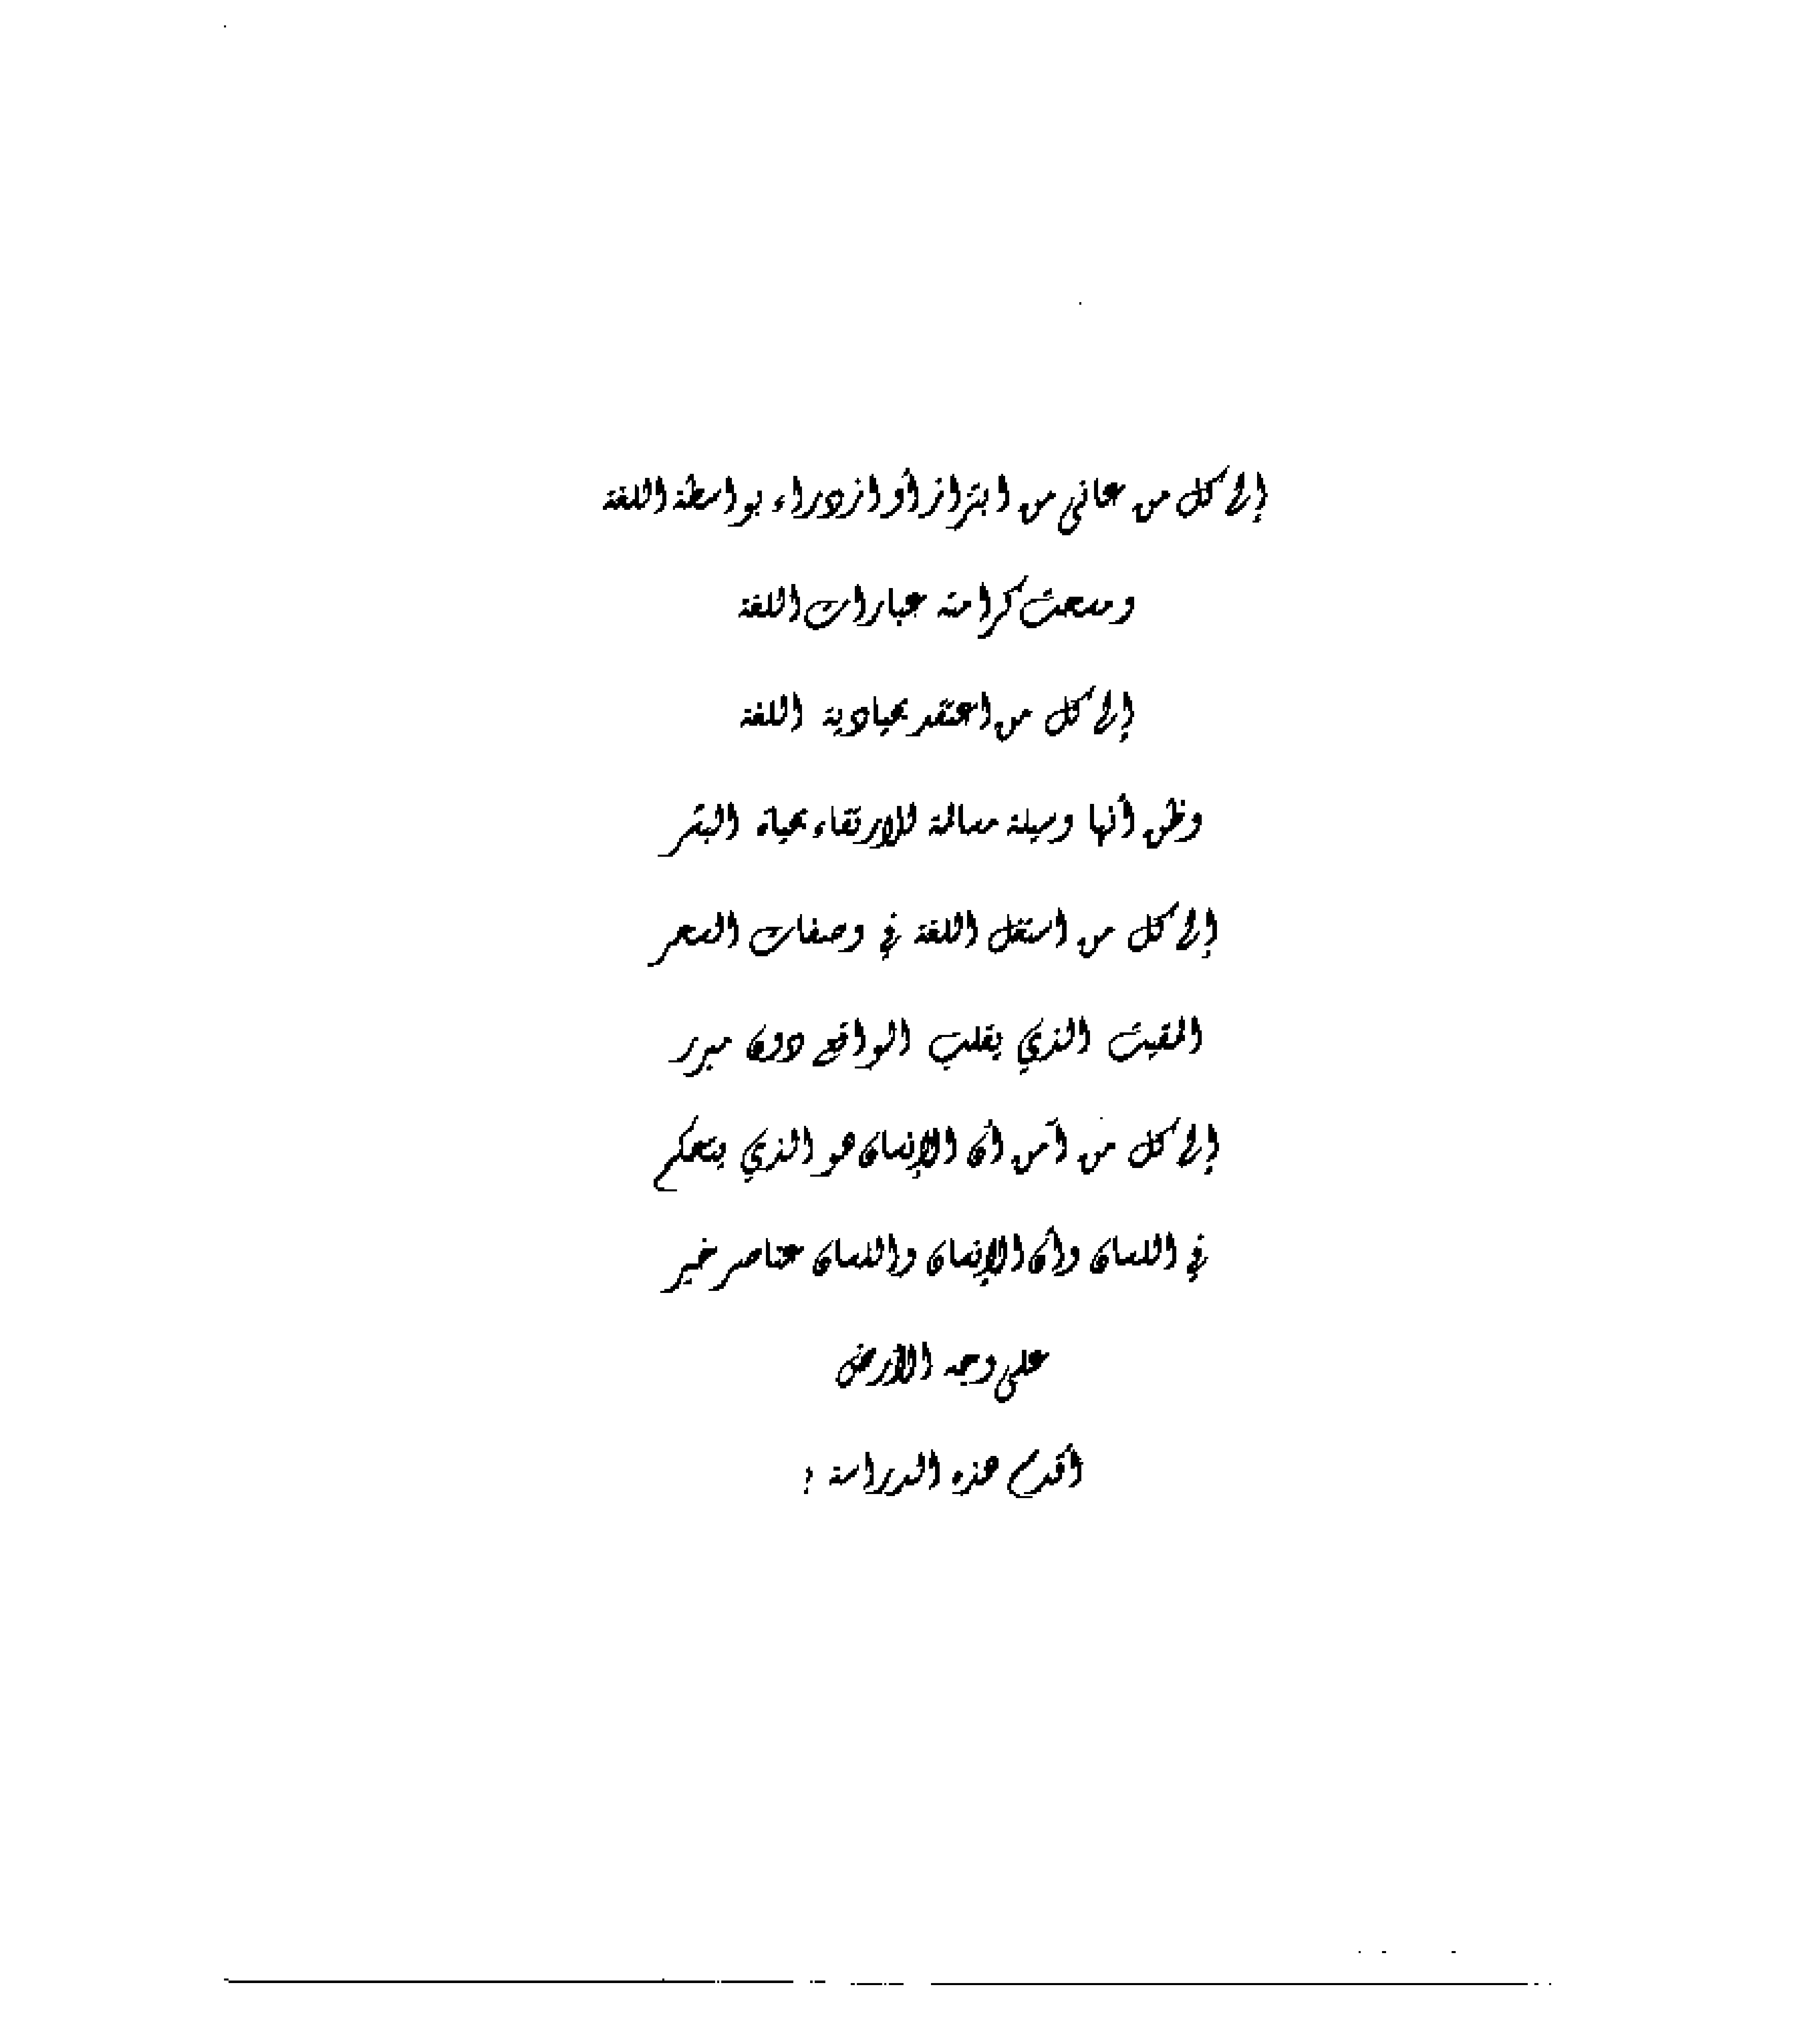 إلى كل من عانى من ابتزاز أو ازدراء بواسطة اللغة
ومسحت كرامته عبارات اللغة
إلى كل من اعتقد بحيادية اللغة
وظن أنها وسيلة مسالمة للارتقاء بحياة البشر
إلى كل من استغل اللغة في وصفات السحر
المقيت الذي يقلب الواقع دون مبرر
إلى كل من آمن أن الإنسان هو الذي يتحكم
في اللسان وأن الإنسان واللسان عناصر خير
على وجه الأرض
أقدم هذه الدراسة ؛